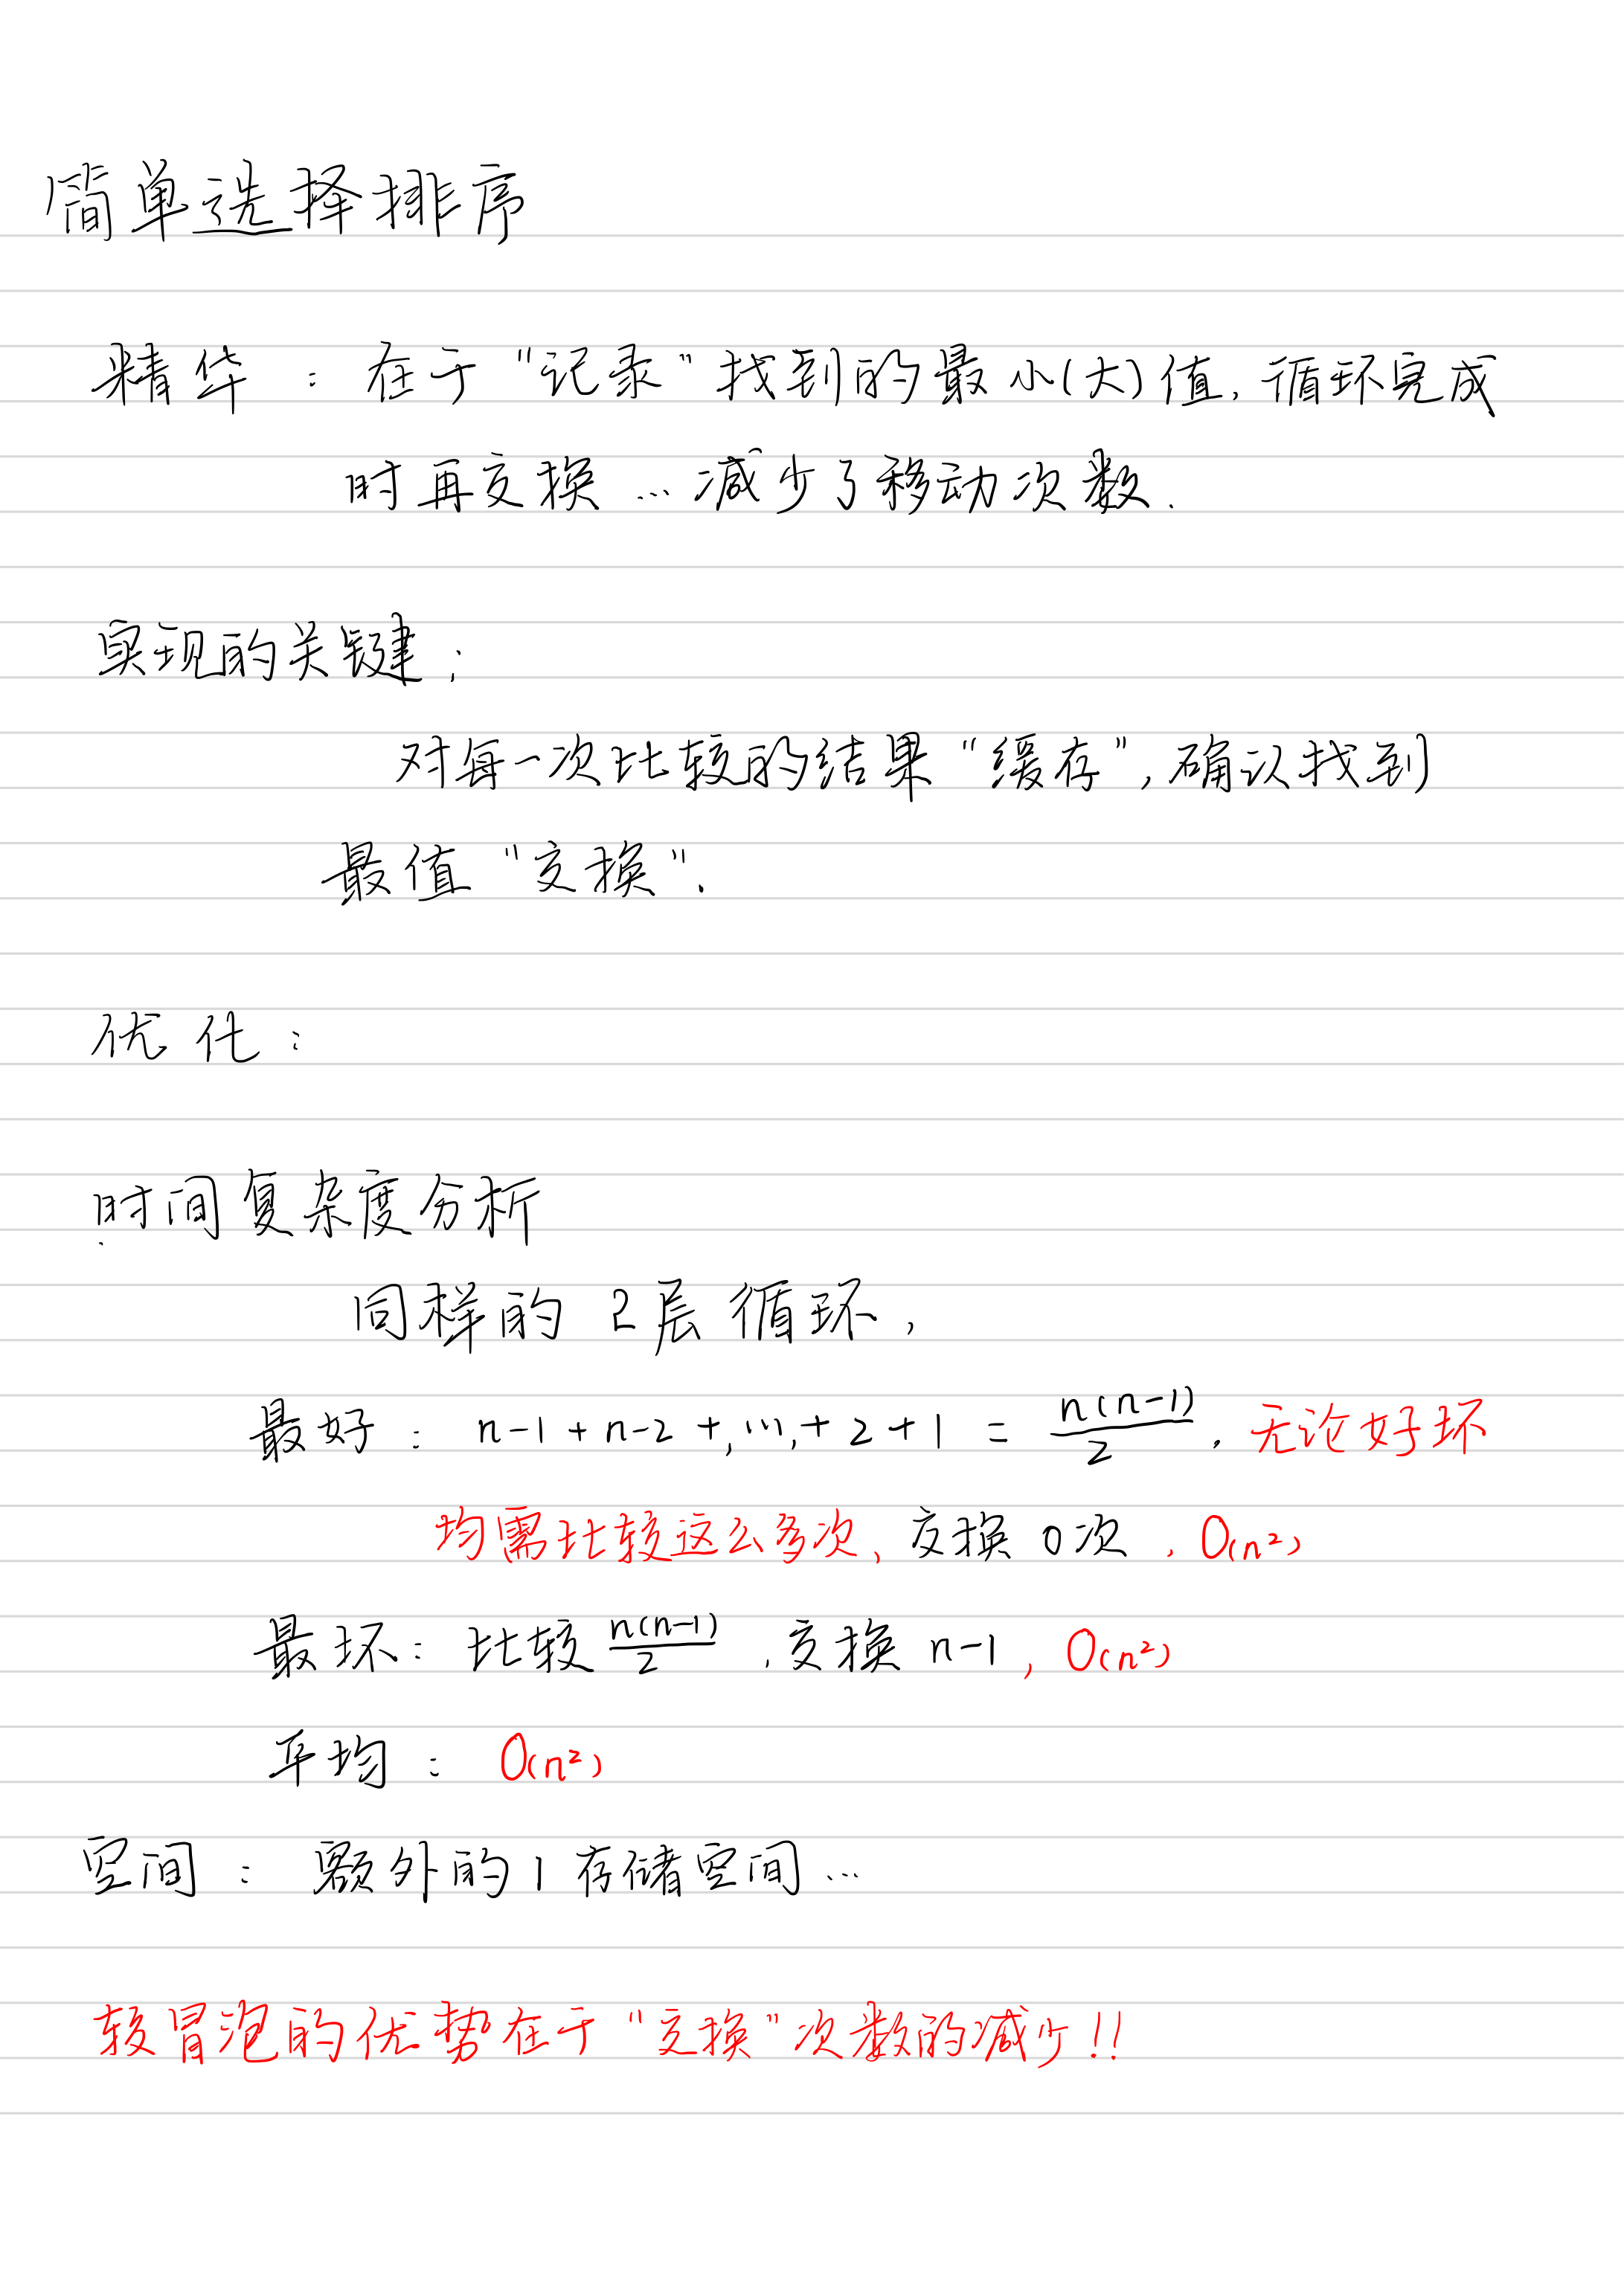 简单选择排序
精华：在于“记录”找到的最小(大)值,循环完成
时再交换…减少了移动次数.
实现的关键:
对每一次比较的结果“缓存”,确认找到
最值“交换”.
优化:
时间复杂度分析
同样的2层循环,
最好: n-1+n-2+,...,+2+1 = n(n-1)/2. 无论好坏
均需比较这么多次,交换0次,O(n²)
最坏: 比较 n(n-1)/2 ,交换n-1,O(n²)
平均: O(n²)
空间: 额外的1存储空间...
较冒泡的优势在于“交换”次数的减少!!